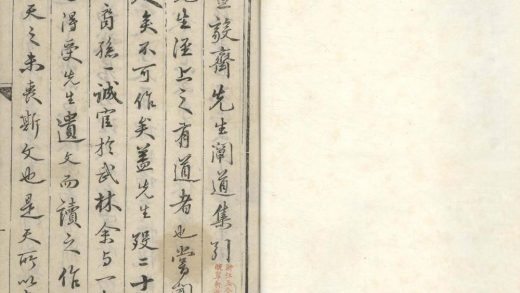 毅齋先生闡道集引
先生涇上之有道者也嘗
矣不可作矣蓋先生歿二十
裔孫一誠官於武林余与一
得受先生遺文而讀之作
天之未喪斯文也是天所以